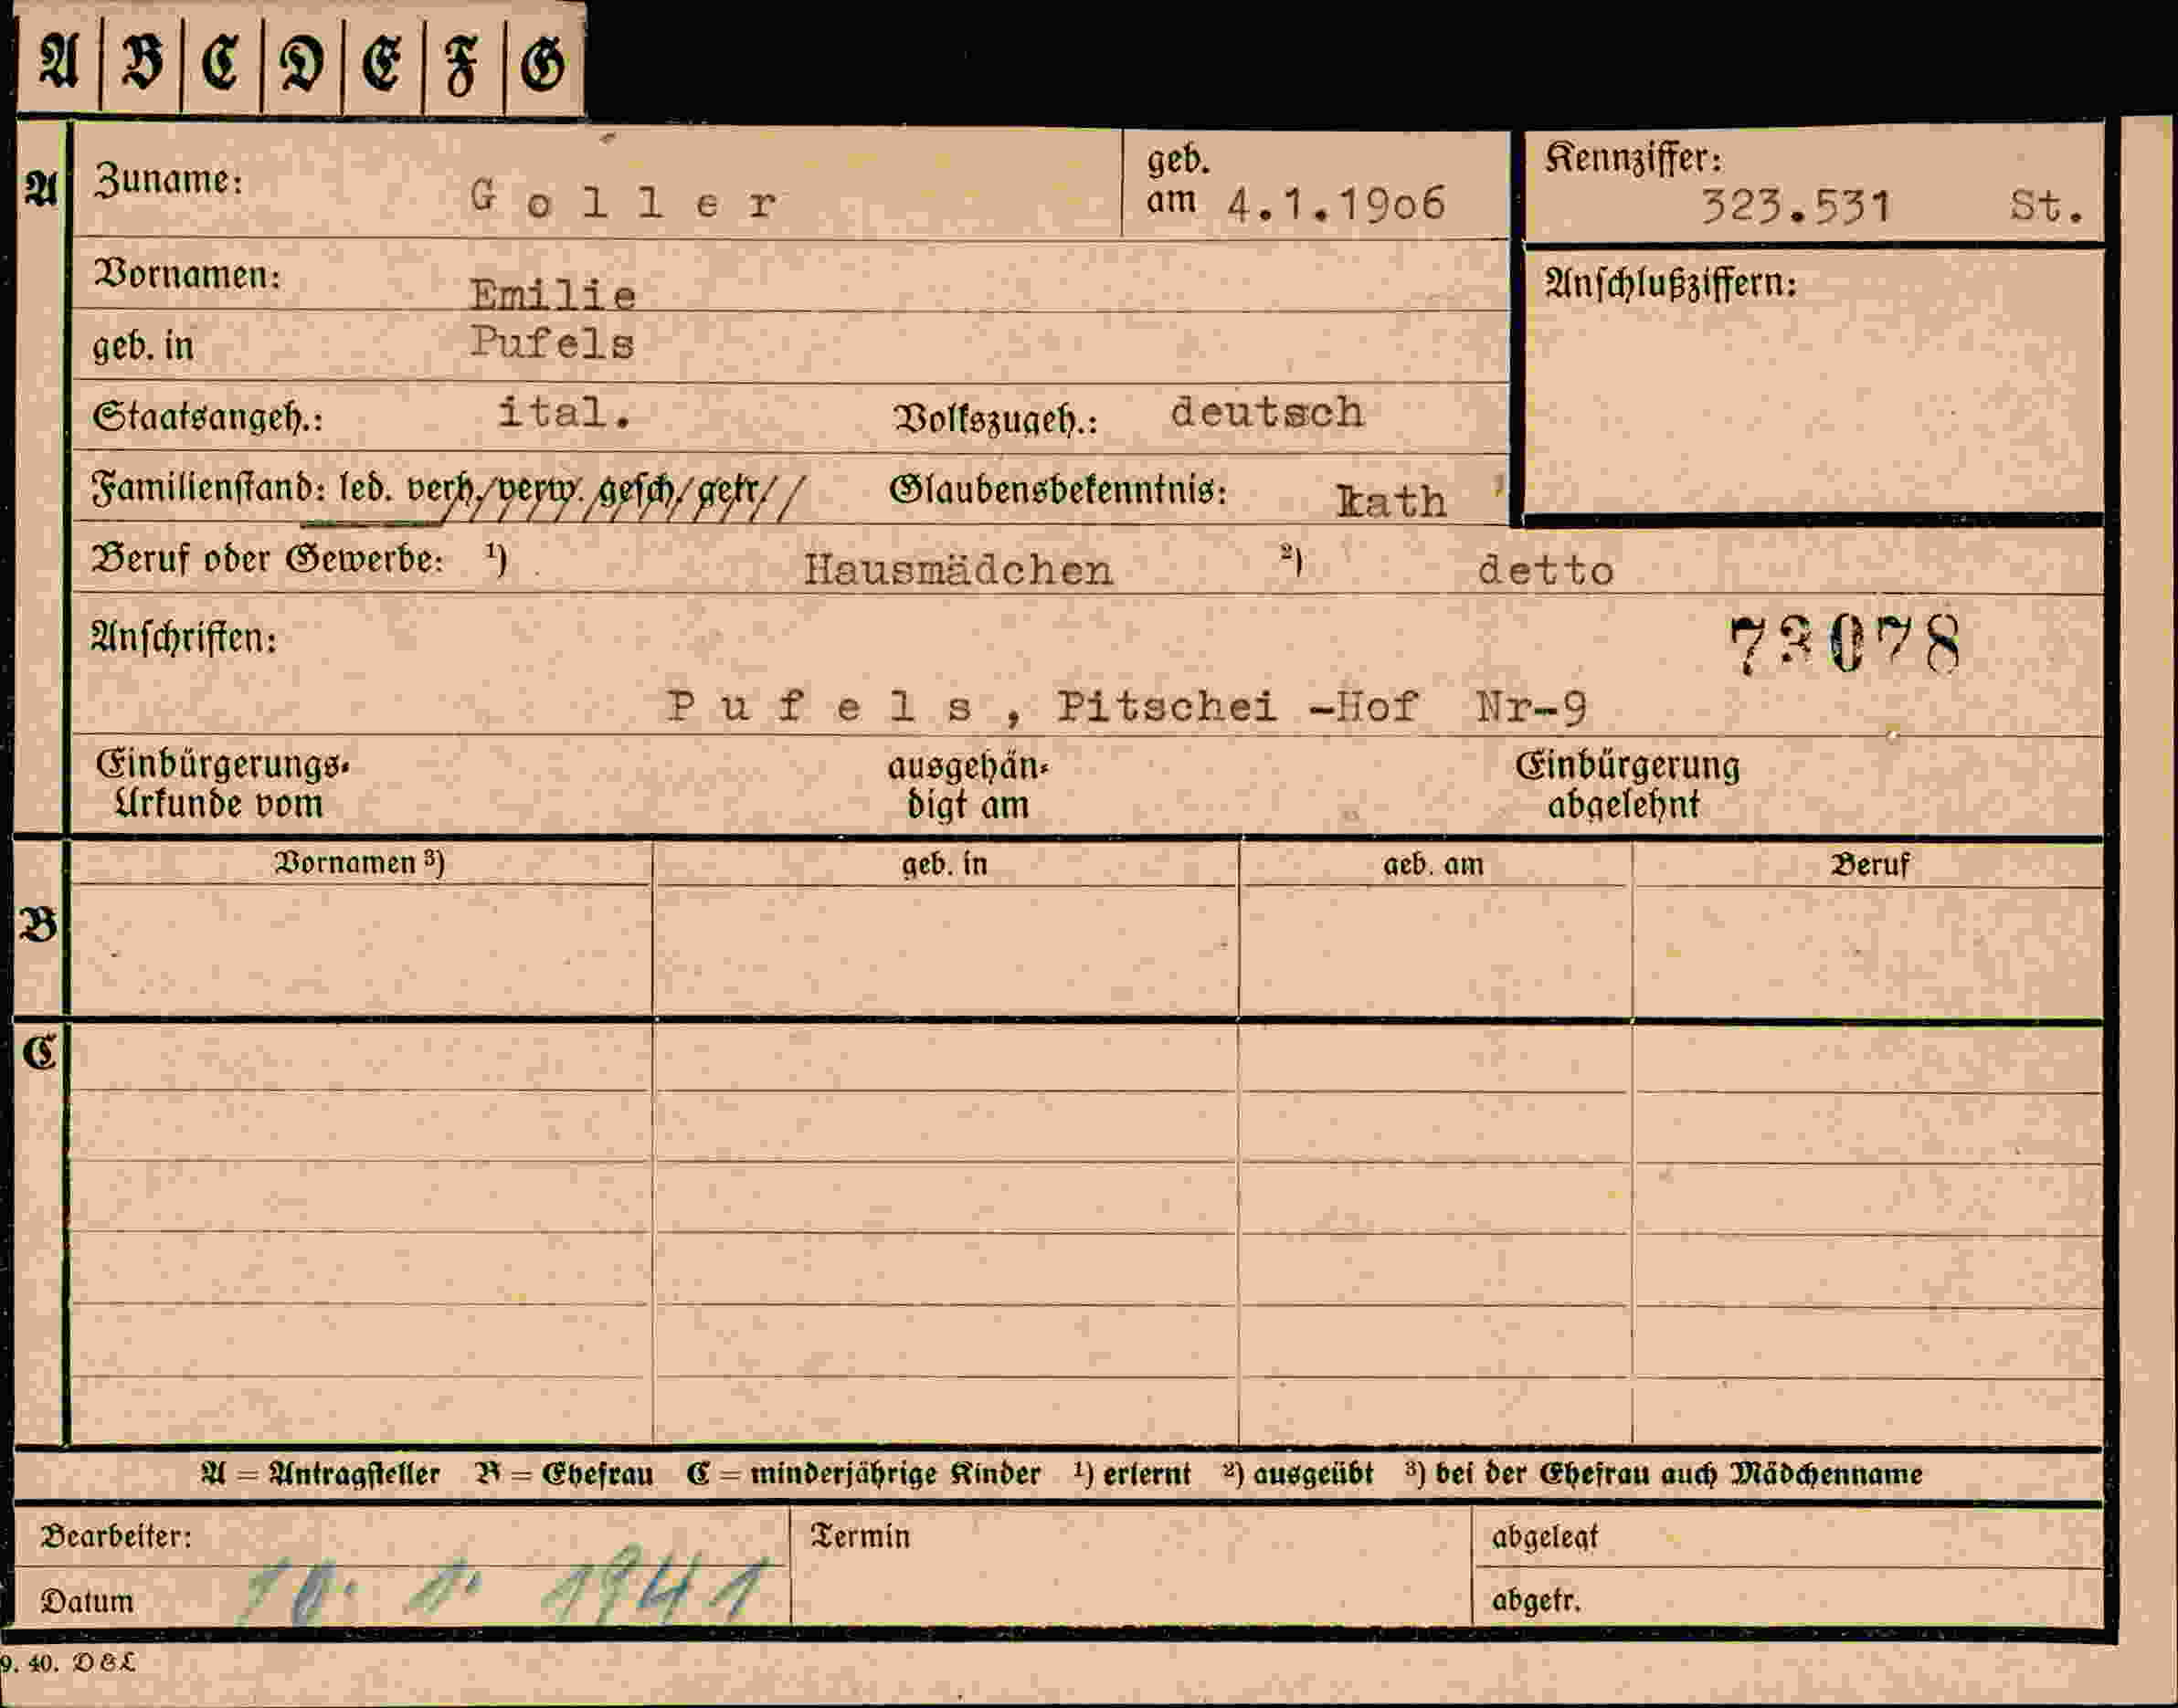 A B C D E F G
A Zuname: Goller geb. am 4.1.1906 Kennziffer: 323.531 St.
Vornamen: Emilie Anschlußziffern:
geb. in Pufels
Staatsangeh.: ital. Volkszugeh.: deutsch
Familienstand: led. verh. verw. gesch. getr. Glaubensbekenntnis: kath
Beruf oder Gewerbe: ¹) Hausmädchen ²) detto
Anschriften: 73078
Pufels, Pitschei -Hof Nr-9
Einbürgerungs- ausgehän- Einbürgerung
Urkunde vom digt am abgelehnt
Vornamen ³) geb. in geb. am Beruf
B
C
A = Antragsteller B = Ehefrau C = minderjährige Kinder ¹) erlernt ²) ausgeübt ³) bei der Ehefrau auch Mädchenname
Bearbeiter: Termin abgelegt
Datum 10. 1. 1941 abgetr.
9. 40. DEL